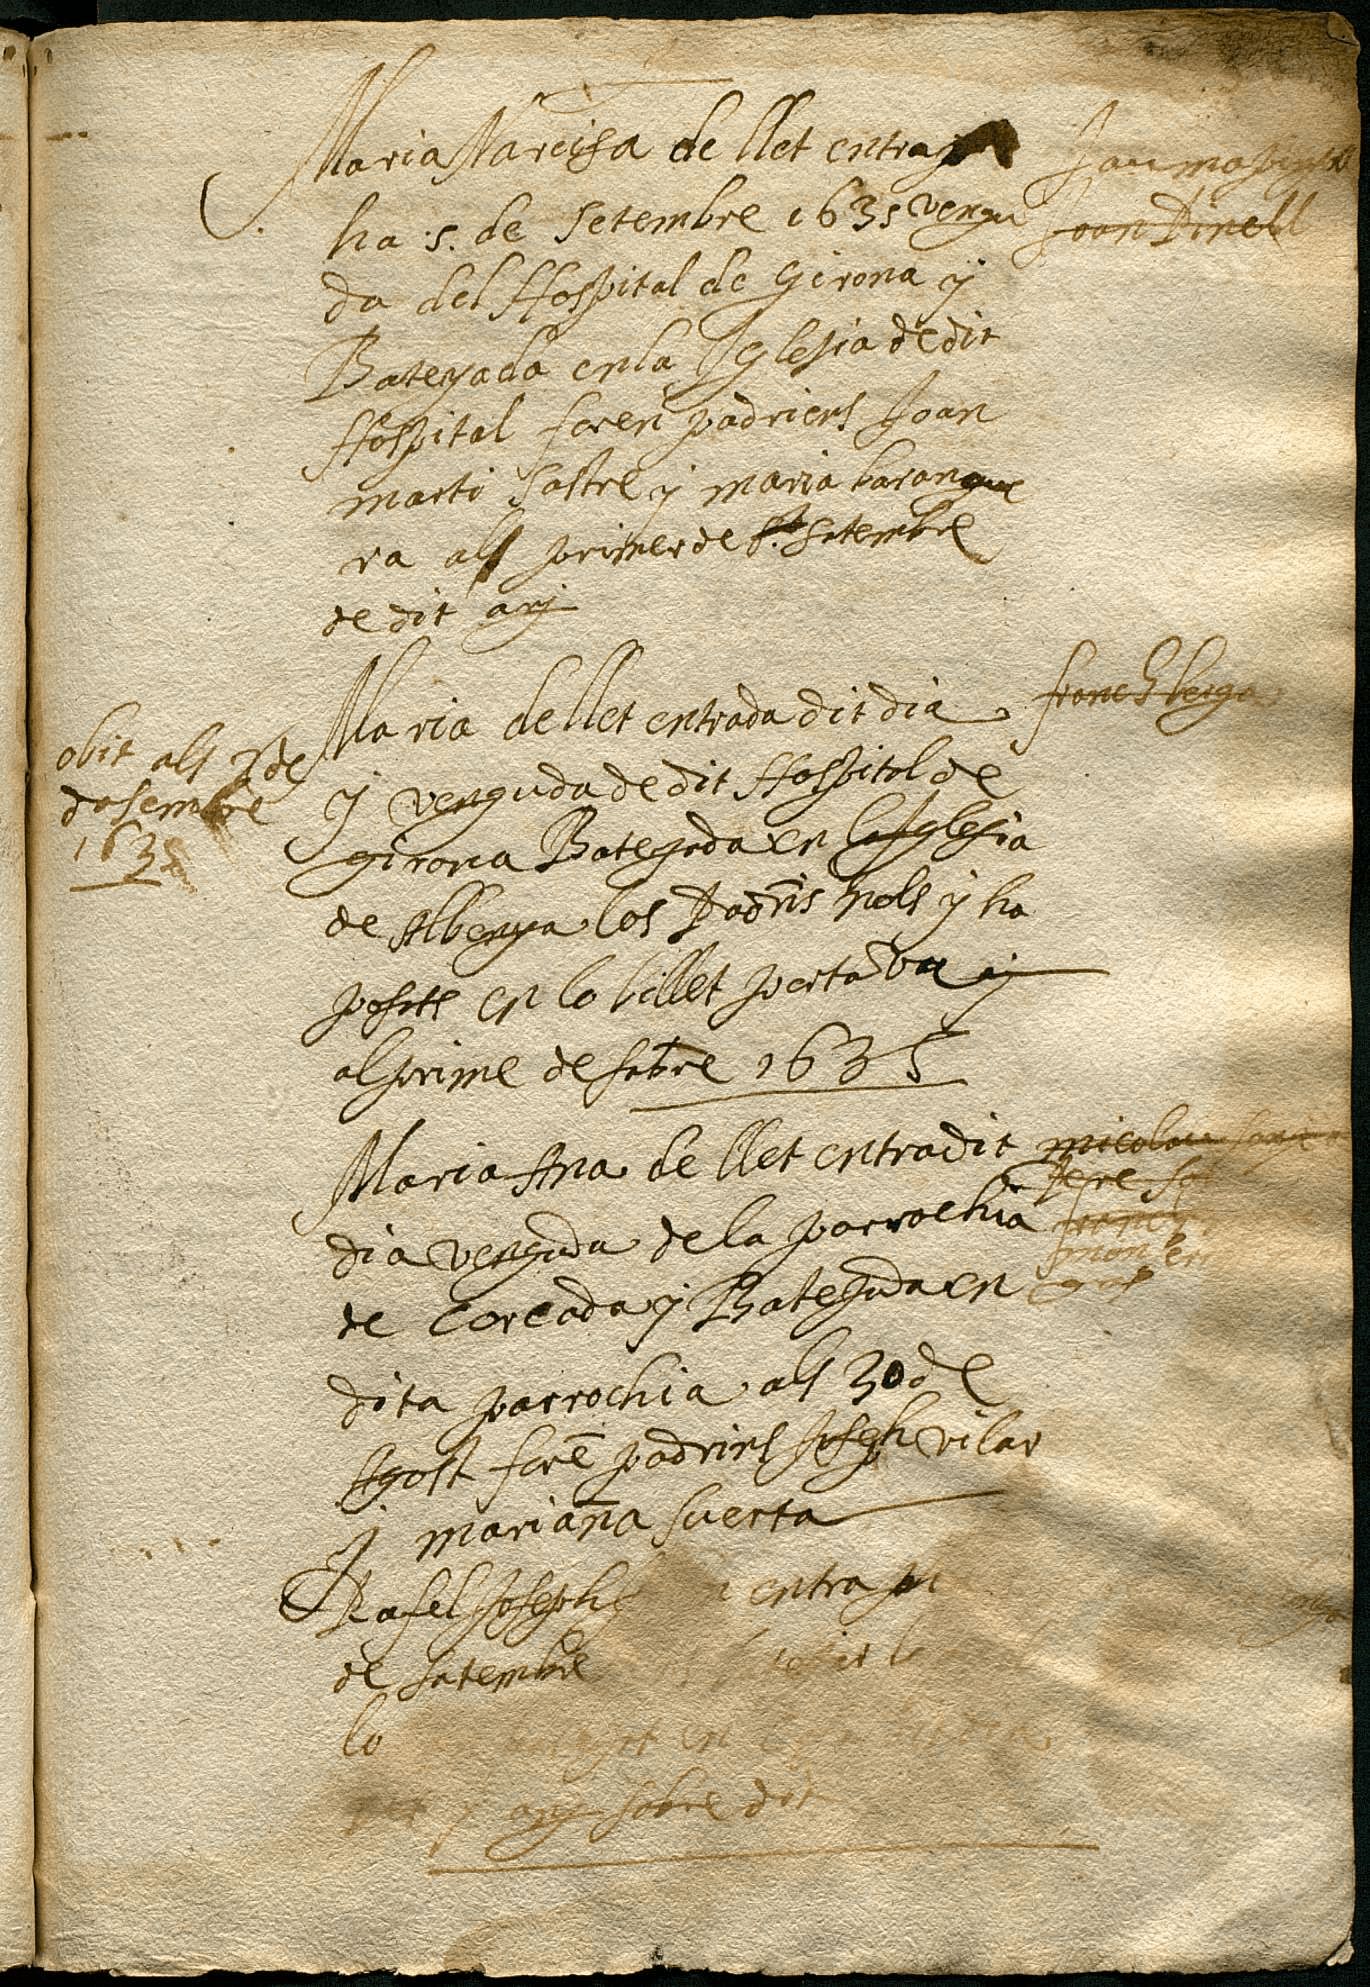 Maria Narcisa de llet entra
ha .5. de setembre 1635 vengu
da del Hospital de Girona y
Bateyada en la Iglesia de dit
Hospital foren padriens Joan
marti sastre y maria barangue
ra als primer de setembre
de dit añy
Joan Dinell
Maria de llet entrada dit dia
y venguda de dit Hospital de
girona Bategada en la Iglesia
de Albenya los Padrīs nols y ha
posats en lo billet portava
al prime de setbre 1635
franch berga
obit als 7 de
desembre
1635
Maria Ana de llet entra dit
dia venguda de la parrochia
de Corcada y Bategada en
dita parrochia als 30 de
Agost forē padrins Joseph vilar
y mariana suerta
micolau
pere
Rafel Joseph entra
de satembre
lo
y añy sobre dit